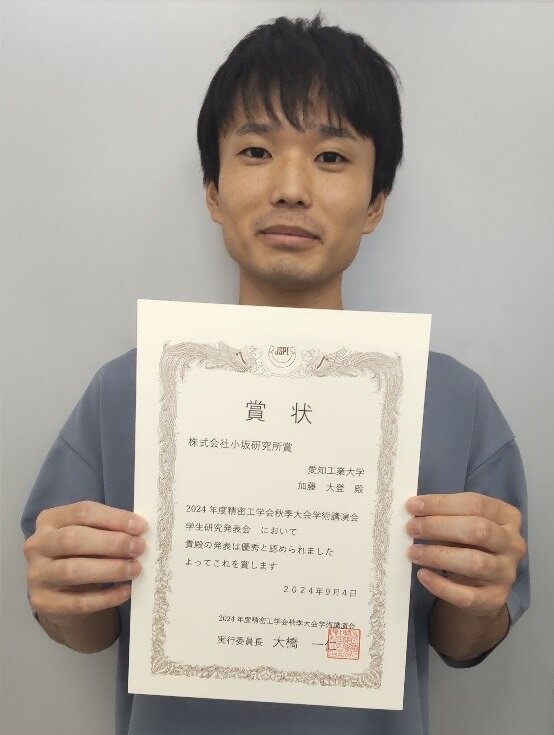 JSPE
賞 状
株式会社小坂研究所賞
愛知工業大学
加藤 大登 殿
2024年度精密工学会秋季大会学術講演会
学生研究発表会 において
貴殿の発表は優秀と認められました
よってこれを賞します
2024年9月4日
2024年度精密工学会秋季大会学術講演会
実行委員長 大橋 一仁